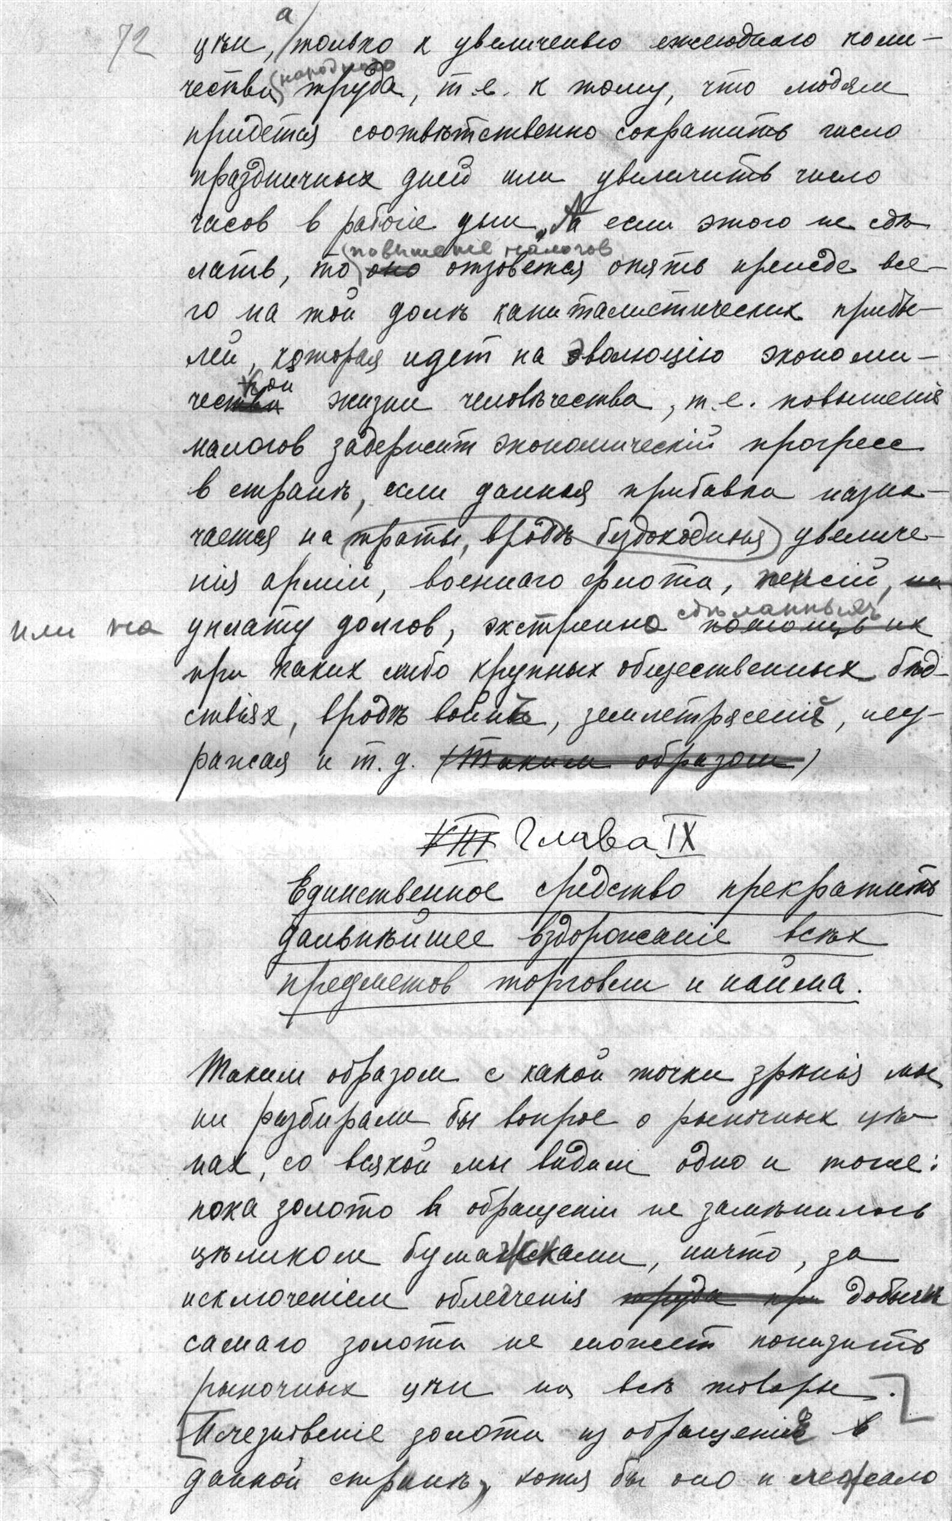 72
цѣн, а только к увеличенью ежегоднаго коли-
чества народнаго труда, т.е. к тому, что людям
придется соотвѣтственно сократить число
праздничных дней или увеличить число
часов в рабочіе дни. А если этого не сдѣ
лать, то оно повышеніе налогов отзовется опять прежде все-
го на той долѣ капиталистических прибы-
лей, которая идет на эволюцію экономи-
ческой жизни человѣчества, т.е. повышеніе
налогов задержит экономическій прогресс
в странѣ, если данная прибавка назна-
чается на траты, вродѣ увеличе-
нія арміи, военнаго флота, пенсій, на
или на уплату долгов, экстренно сдѣланных
при каких либо крупных общественных бѣд-
ствіях, вродѣ войнъ, землетрясеній, неу-
рожая и т.д. (Таким образом)
VIII Глава IX
Единственное средство прекратить
дальнѣйшее вздорожаніе всѣх
предметов торговли и найма.
Таким образом с какой точки зрѣнія мы
ни разбирали бы вопрос о рыночных цѣ
нах, со всякой мы видим одно и тоже:
пока золото в обращеніи не замѣнилось
цѣликом бумажками, ничто, за
исключеніем облегченія труда при добычи
самаго золота не может понизить
рыночных цѣн на всѣ товары.
[Исчезновеніе золота из обращенія в
данной странѣ, хотя бы оно и лежало